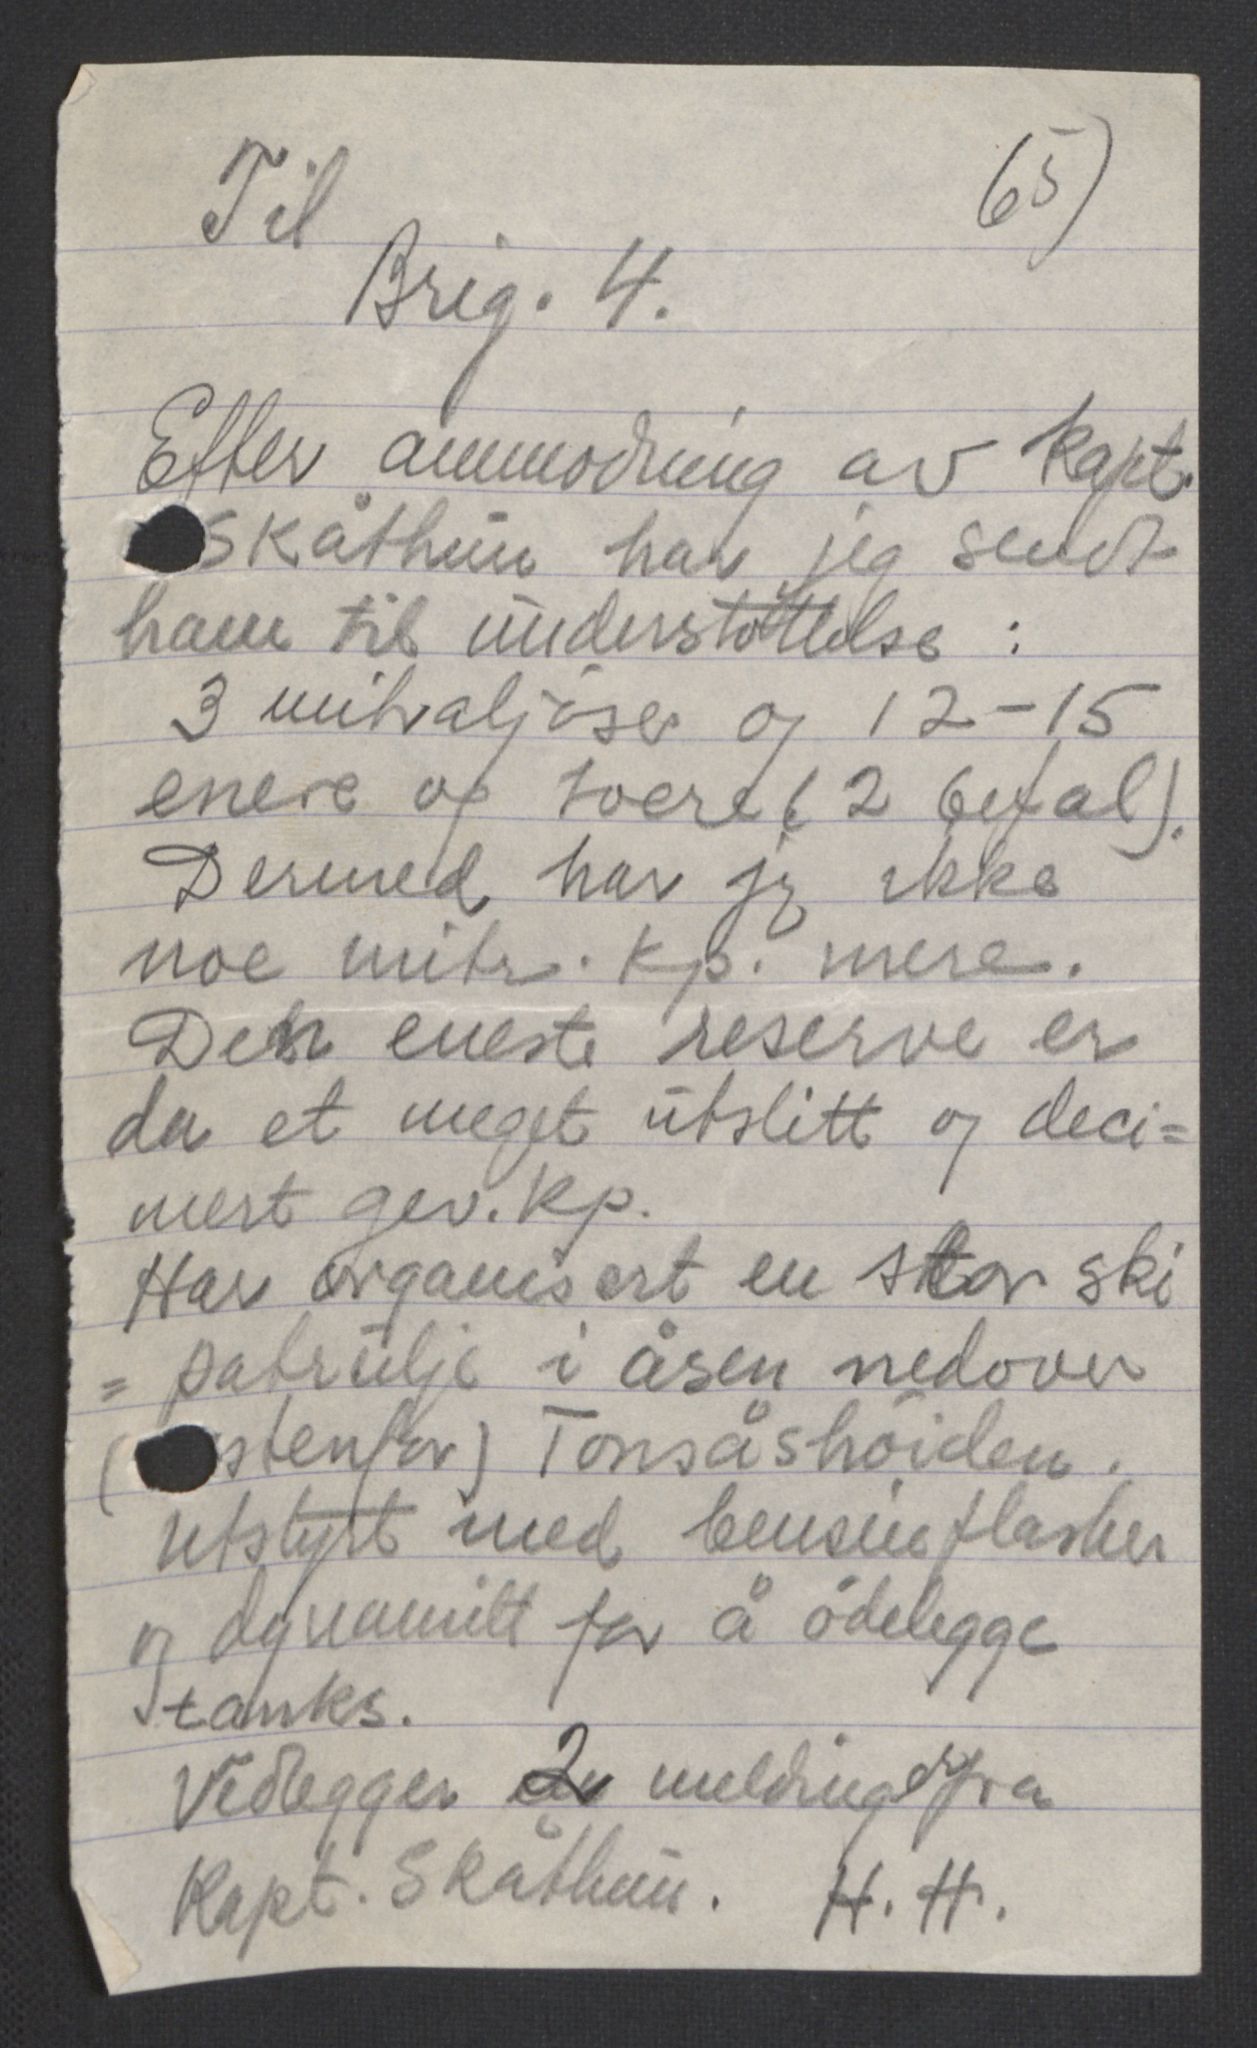 65)
Til
Brig. 4.
Efter anmodning av Kapt.
Skåthun har jeg sendt
ham til understöttelse :
3 mitraljöser og 12-15
enere og toere (2 befal).
Dermed har jeg ikke
noe mitr. kp. mere.
Den eneste reserve er
da et meget utslitt og deci=
mert gev. kp.
Har organisert en stor ski
= patrulje i åsen nedover
( stenfor) Tonsåshöiden.
Utstyrt med bensinflasker
og dynamitt for å ödelegge
tanks.
Vedlegger 2 meldinger fra
Kapt. Skåthun. H. H.